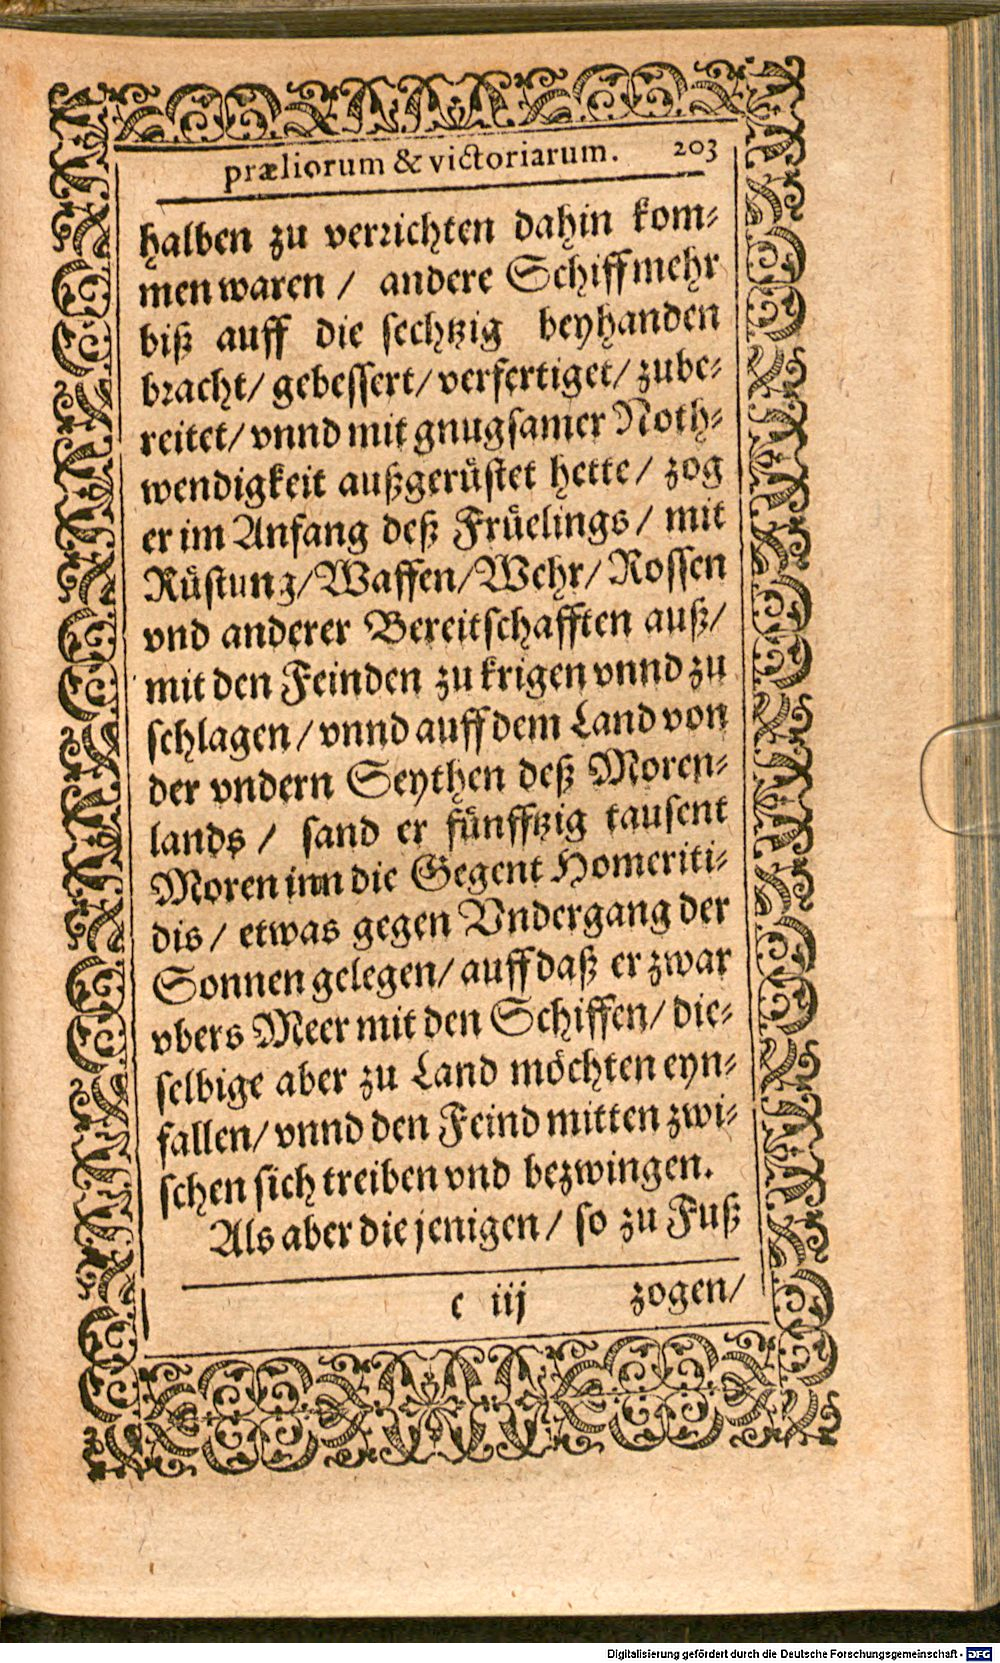 præliorum & victoriarum. 203
halben zu verrichten dahin kom⸗
men waren / andere Schiff mehr
biß auff die sechtzig beyhanden
bracht / gebessert / verfertiget / zube⸗
reitet / vnnd mit gnugsamer Noth⸗
wendigkeit außgerüstet hette / zog
er im Anfang deß Früelings / mit
Rüstung / Waffen / Wehr / Rossen
vnd anderer Bereitschafften auß /
mit den Feinden zu krigen vnnd zu
schlagen / vnnd auff dem Land von
der vndern Seythen deß Moren⸗
lands / sand er fünfftzig tausent
Moren inn die Gegent Homeriti⸗
dis / etwas gegen Vndergang der
Sonnen gelegen / auff daß er zwar
vbers Meer mit den Schiffen / die⸗
selbige aber zu Land möchten eyn⸗
fallen / vnnd den Feind mitten zwi⸗
schen sich treiben vnd bezwingen.
Als aber die jenigen / so zu Fuß
c iij zogen /
Digitalisierung gefördert durch die Deutsche Forschungsgemeinschaft - DFG